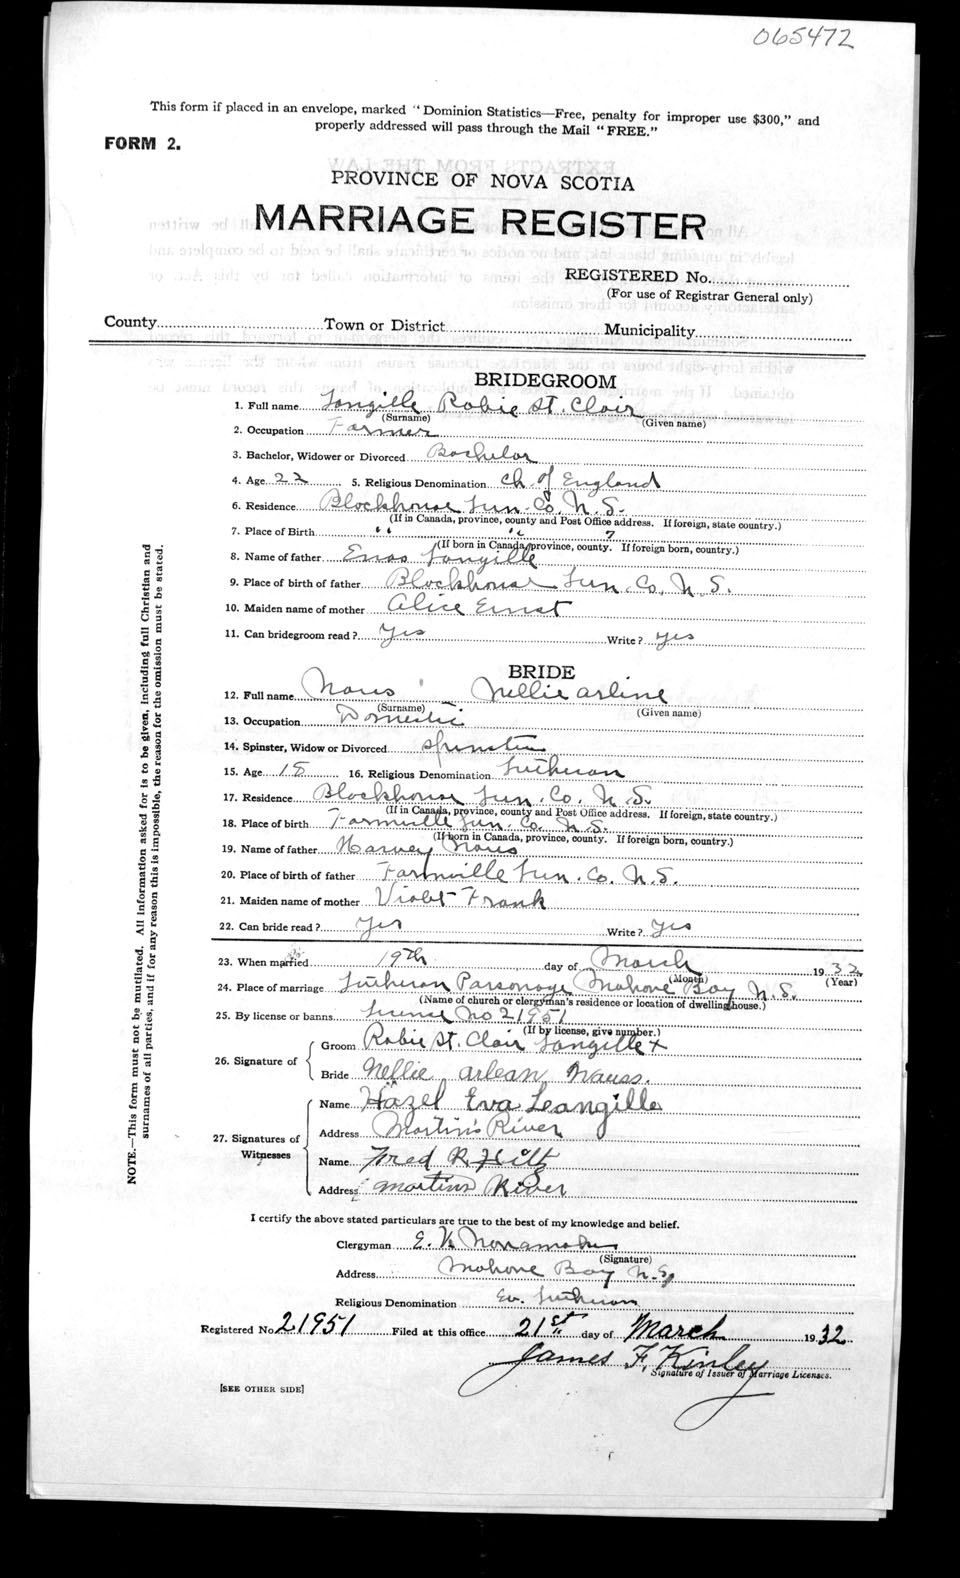 065472
This form if placed in an envelope, marked "Dominion Statistics—Free, penalty for improper use $300," and
properly addressed will pass through the Mail "FREE."
FORM 2.
PROVINCE OF NOVA SCOTIA
MARRIAGE REGISTER
REGISTERED No.
(For use of Registrar General only)
County Town or District Municipality
BRIDEGROOM
1. Full name Langille Robie St. Clair
(Surname) (Given name)
2. Occupation Farmer
3. Bachelor, Widower or Divorced Bachelor
4. Age 22 5. Religious Denomination Ch. of England
6. Residence Blockhouse Lun. Co. N. S.
(If in Canada, province, county and Post Office address. If foreign, state country.)
7. Place of Birth " " "
(If born in Canada, province, county. If foreign born, country.)
8. Name of father Enos Langille
9. Place of birth of father Blockhouse Lun. Co. N. S.
10. Maiden name of mother Alice Ernst
11. Can bridegroom read? Yes Write? yes
BRIDE
12. Full name Naus Nellie arline
(Surname) (Given name)
13. Occupation Domestic
14. Spinster, Widow or Divorced Spinster
15. Age 18 16. Religious Denomination Lutheran
17. Residence Blockhouse Lun. Co. N. S.
(If in Canada, province, county and Post Office address. If foreign, state country.)
18. Place of birth Farmville Lun. Co. N. S.
(If born in Canada, province, county. If foreign born, country.)
19. Name of father Harvey Naus
20. Place of birth of father Farmville Lun. Co. N. S.
21. Maiden name of mother Violet Frank
22. Can bride read? Yes Write? Yes
23. When married 19th day of March 1932
(Month) (Year)
24. Place of marriage Lutheran Parsonage Mahone Bay N. S.
(Name of church or clergyman's residence or location of dwelling house.)
25. By license or banns License No 21951
(If by license, give number.)
26. Signature of
Groom Robie St. Clair Langille x
Bride Nellie arlean Nauss.
27. Signatures of Witnesses
Name Hazel Eva Leangille
Address Martin's River
Name Fred R. Hiltz
Address Martins River
I certify the above stated particulars are true to the best of my knowledge and belief.
Clergyman E. V. Nonamaker
(Signature)
Address Mahone Bay N. S.
Religious Denomination Ev. Lutheran
Registered No 21951 Filed at this office 21st day of March 1932
James F. Kinley
Signature of Issuer of Marriage Licenses.
[SEE OTHER SIDE]
NOTE.—This form must not be mutilated. All information asked for is to be given, including full Christian and
surnames of all parties, and if for any reason this is impossible, the reason for the omission must be stated.